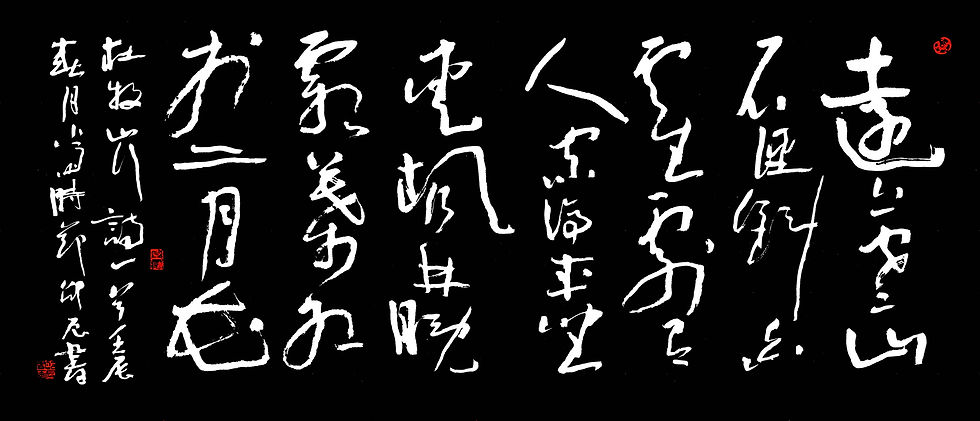 遠上寒山
石徑斜白
雲生處有
人家停車坐
愛楓林晚
霜葉紅
於二月花
杜牧山行詩一首壬辰
春月時節書